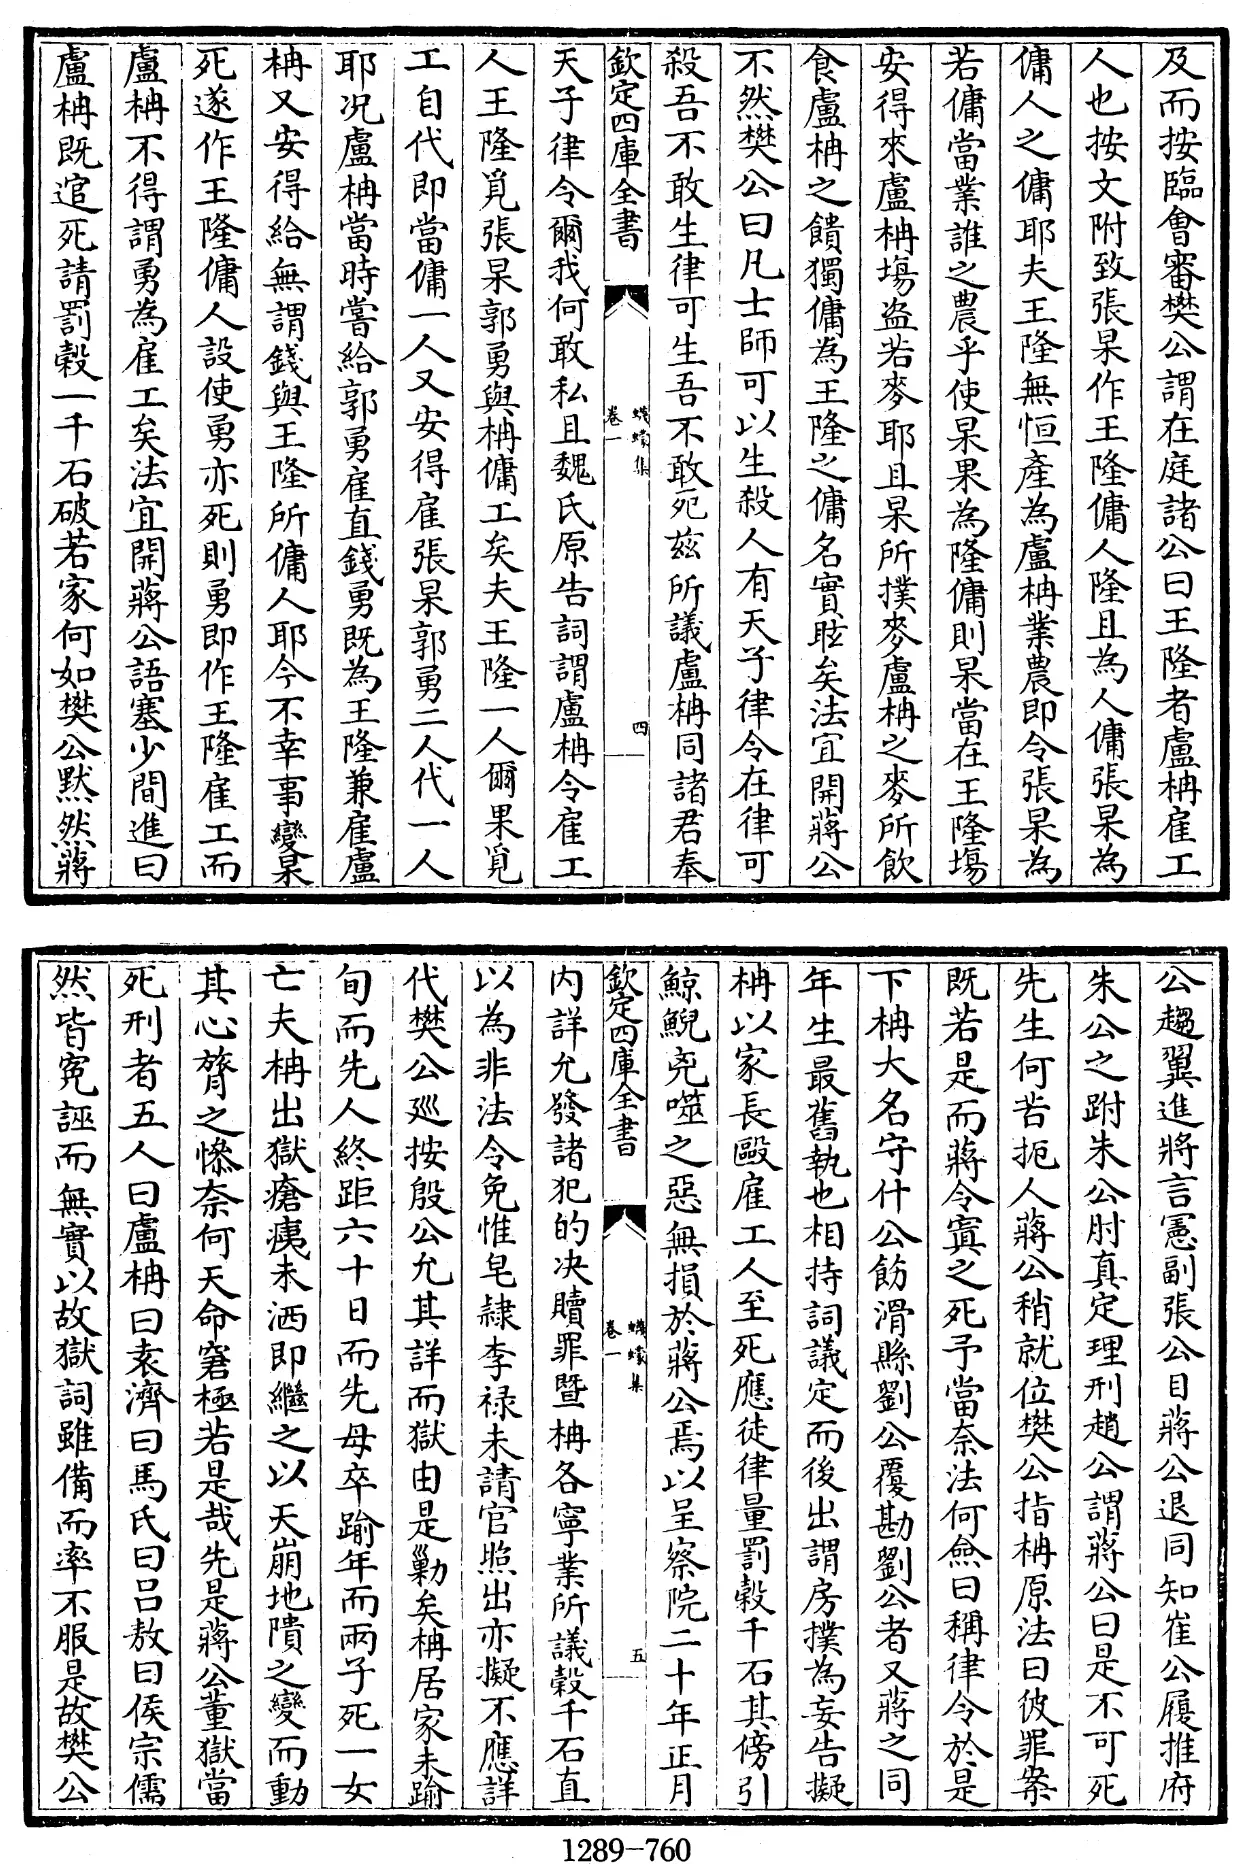 及而按臨會審樊公謂在庭諸公曰王隆者盧柟雇工
人也按文附致張杲作王隆傭人隆且為人傭張杲為
傭人之傭耶夫王隆無恒產為盧柟業農即令張杲為
若傭當業誰之農乎使杲果為隆傭則杲當在王隆塲
安得來盧柟塲盗若麥耶且杲所撲麥盧柟之麥所飲
食盧柟之饋獨傭為王隆之傭名實眩矣法宜開蔣公
不然樊公曰凡士師可以生殺人有天子律令在律可
殺吾不敢生律可生吾不敢死兹所議盧柟同諸君奉
欽定四庫全書
蠛蠓集
卷一
四
天子律令爾我何敢私且魏氏原告詞謂盧柟令雇工
人王隆覓張杲郭勇與柟傭工矣夫王隆一人爾果覓
工自代即當傭一人又安得雇張杲郭勇二人代一人
耶况盧柟當時嘗給郭勇雇直錢勇既為王隆兼雇盧
柟又安得給無謂錢與王隆所傭人耶今不幸事變杲
死遂作王隆傭人設使勇亦死則勇即作王隆雇工而
盧柟不得謂勇為雇工矣法宜開蔣公語塞少間進曰
盧柟既逭死請罰穀一千石破若家何如樊公黙然蔣
公趨翼進將言憲副張公目蔣公退同知崔公履推府
朱公之跗朱公肘真定理刑趙公謂蔣公曰是不可死
先生何苦扼人蔣公稍就位樊公指柟原法曰彼罪案
既若是而蔣令寘之死予當奈法何僉曰稱律令於是
下柟大名守什公飭滑縣劉公覆勘劉公者又蔣之同
年生最舊執也相持詞議定而後出謂房撲為妄告擬
柟以家長毆雇工人至死應徒律量罰穀千石其傍引
鯨鯢尭噬之惡無損於蔣公焉以呈察院二十年正月
欽定四庫全書
蠛蠓集
卷一
五
内詳允發諸犯的决贖罪暨柟各寧業所議穀千石直
以為非法令免惟皂隸李禄未請官照出亦擬不應詳
代樊公廵按殷公允其詳而獄由是勦矣柟居家未踰
旬而先人終距六十日而先母卒踰年而兩子死一女
亡夫柟出獄瘡痍未洒即繼之以天崩地隤之變而動
其心膂之慘柰何天命窘極若是哉先是蔣公董獄當
死刑者五人曰盧柟曰袁濟曰馬氏曰吕敖曰侯宗儒
然皆寃誣而無實以故獄詞雖備而率不服是故樊公
1289-760